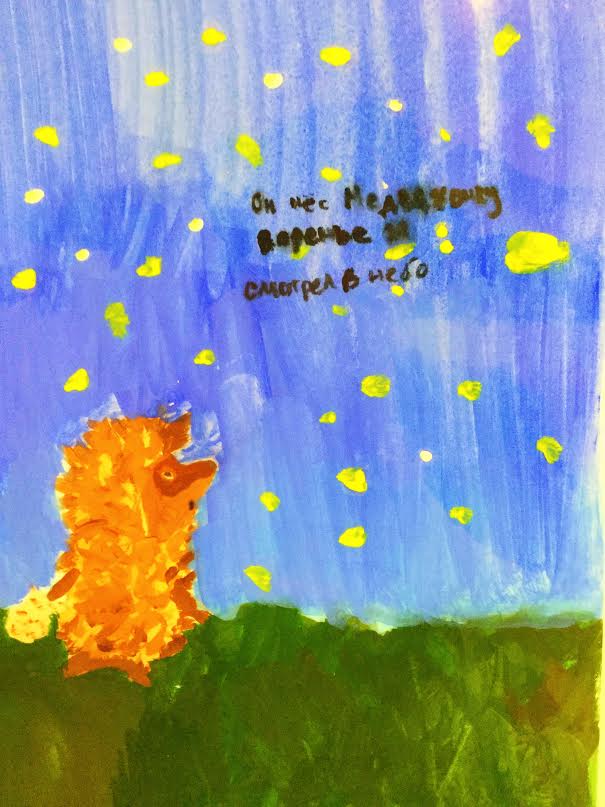 Он нёс Медвежонку
варенье и
смотрел в небо